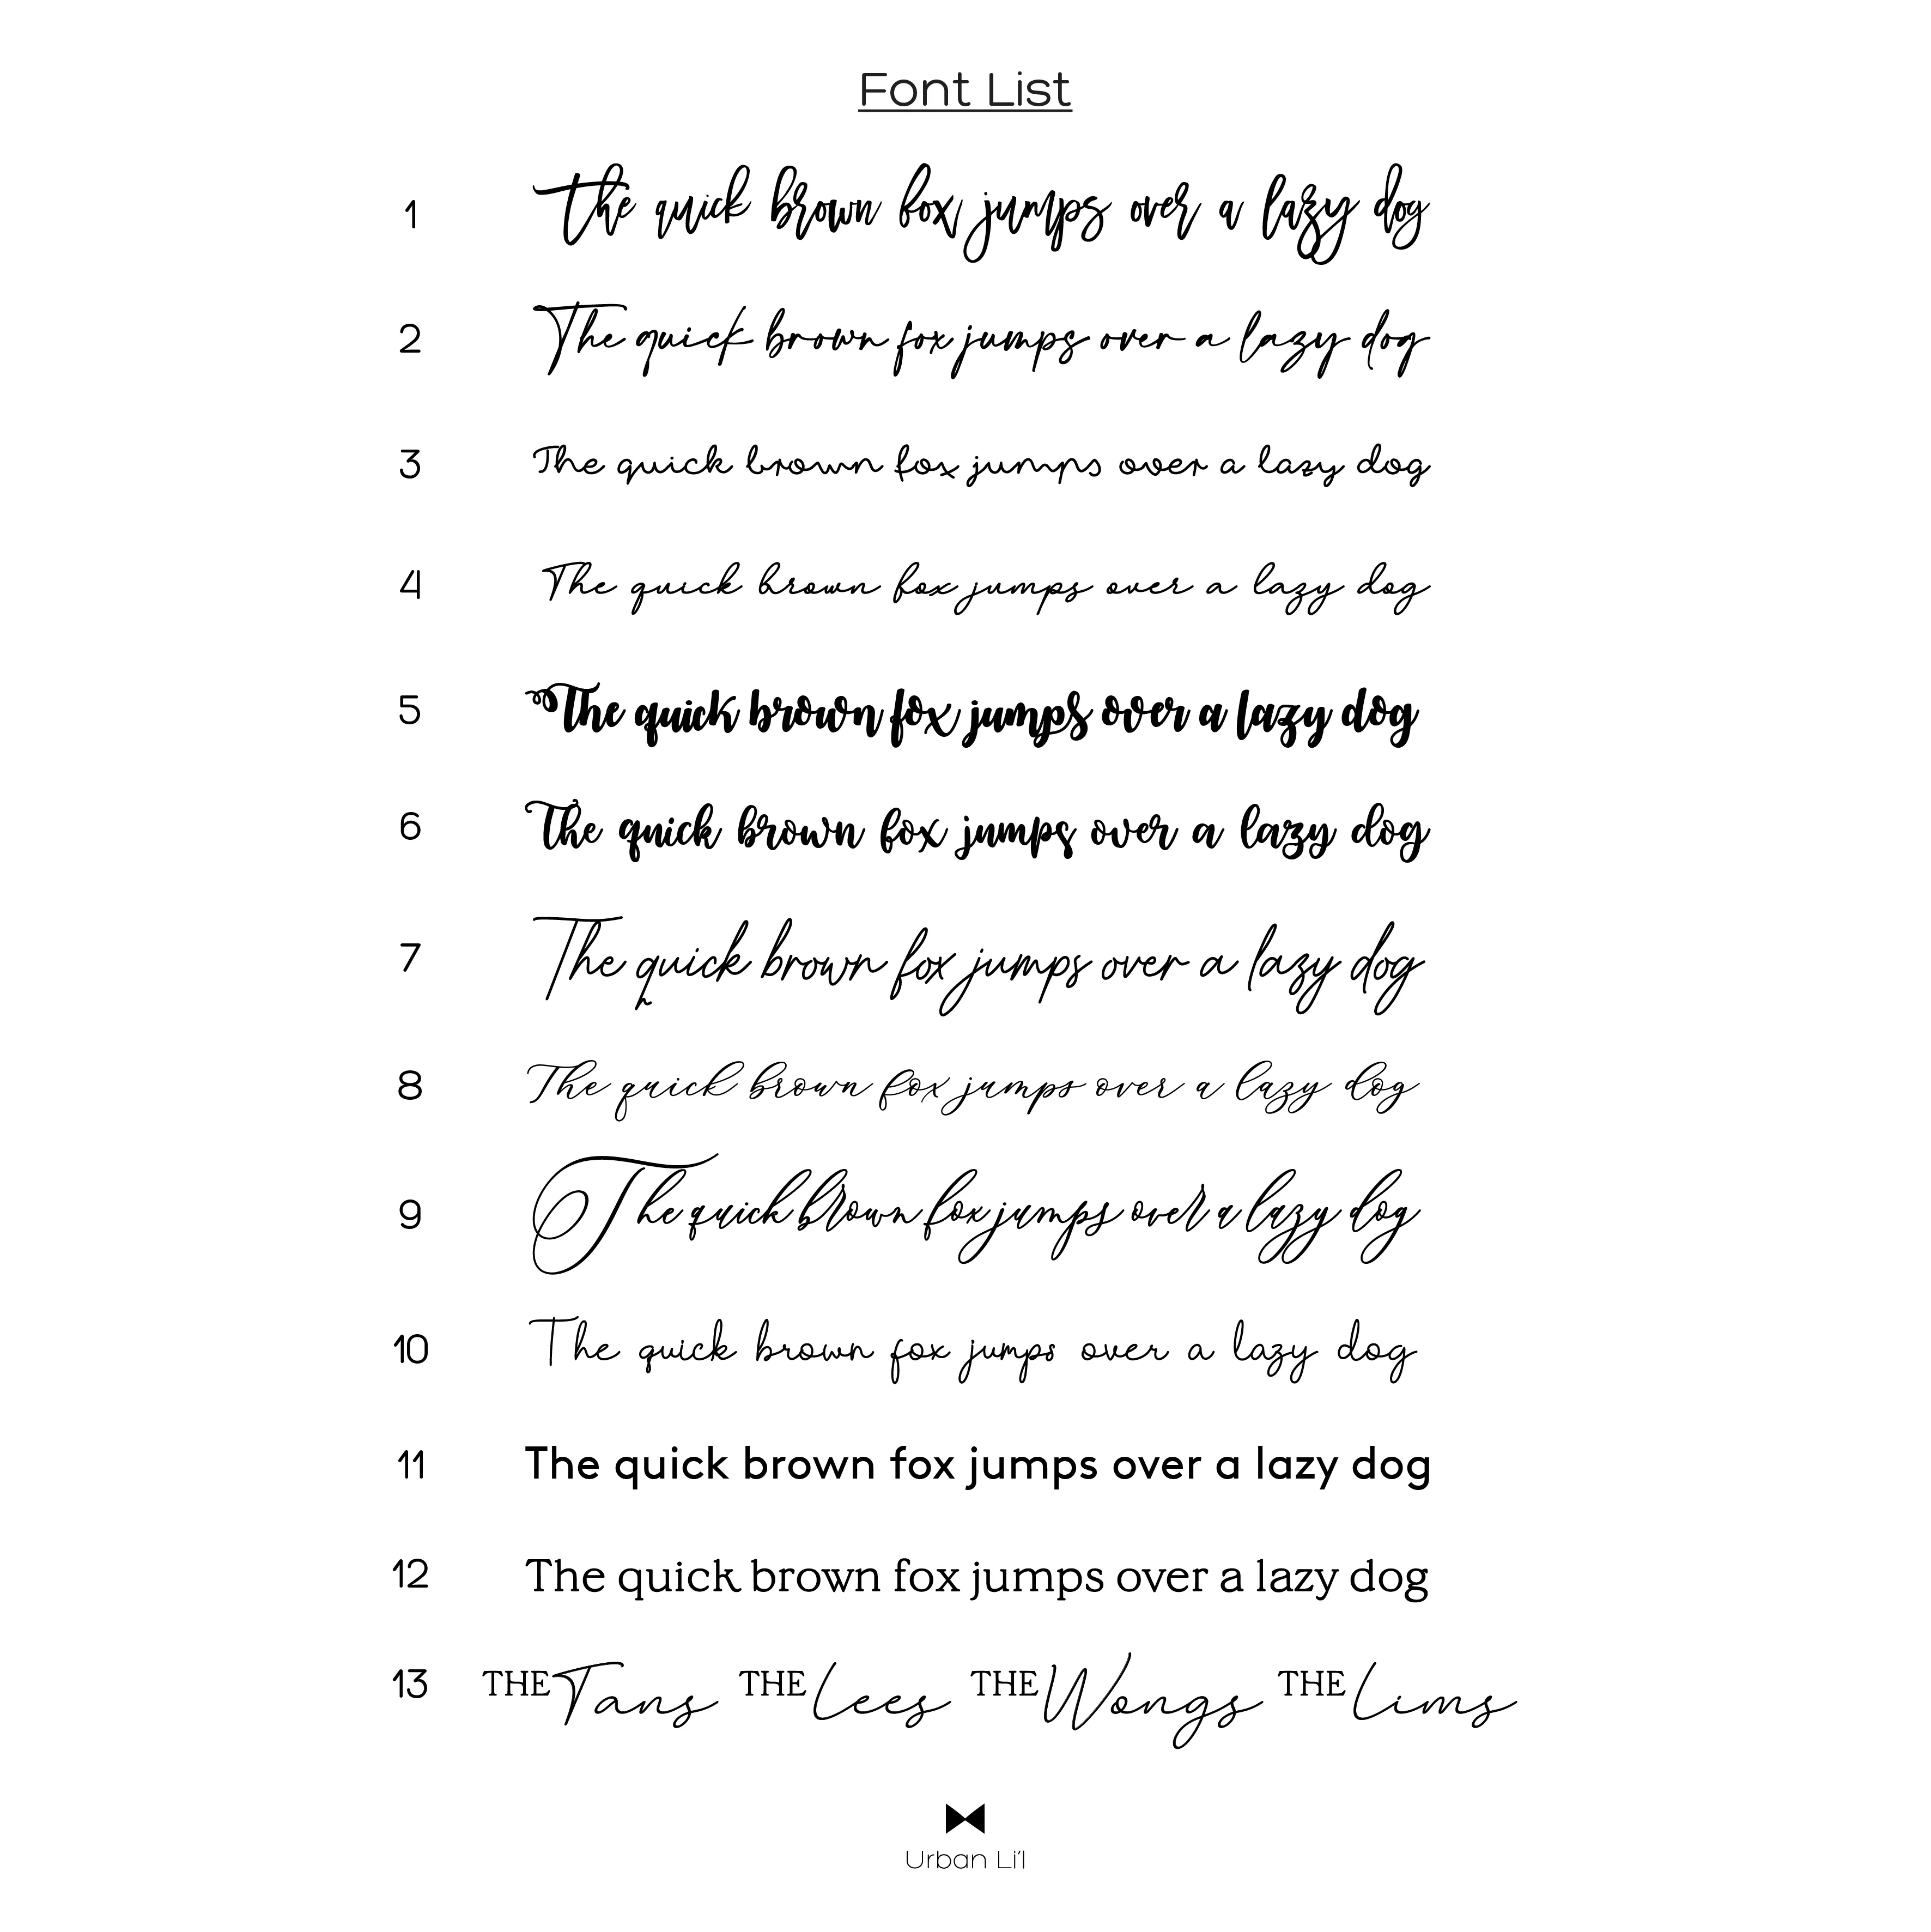 Font List
1 The quick brown fox jumps over a lazy dog
2 The quick brown fox jumps over a lazy dog
3 The quick brown fox jumps over a lazy dog
4 The quick brown fox jumps over a lazy dog
5 The quick brown fox jumps over a lazy dog
6 The quick brown fox jumps over a lazy dog
7 The quick brown fox jumps over a lazy dog
8 The quick brown fox jumps over a lazy dog
9 The quick brown fox jumps over a lazy dog
10 The quick brown fox jumps over a lazy dog
11 The quick brown fox jumps over a lazy dog
12 The quick brown fox jumps over a lazy dog
13 THE Tans THE Lees THE Wongs THE Lims
Urban Li'l